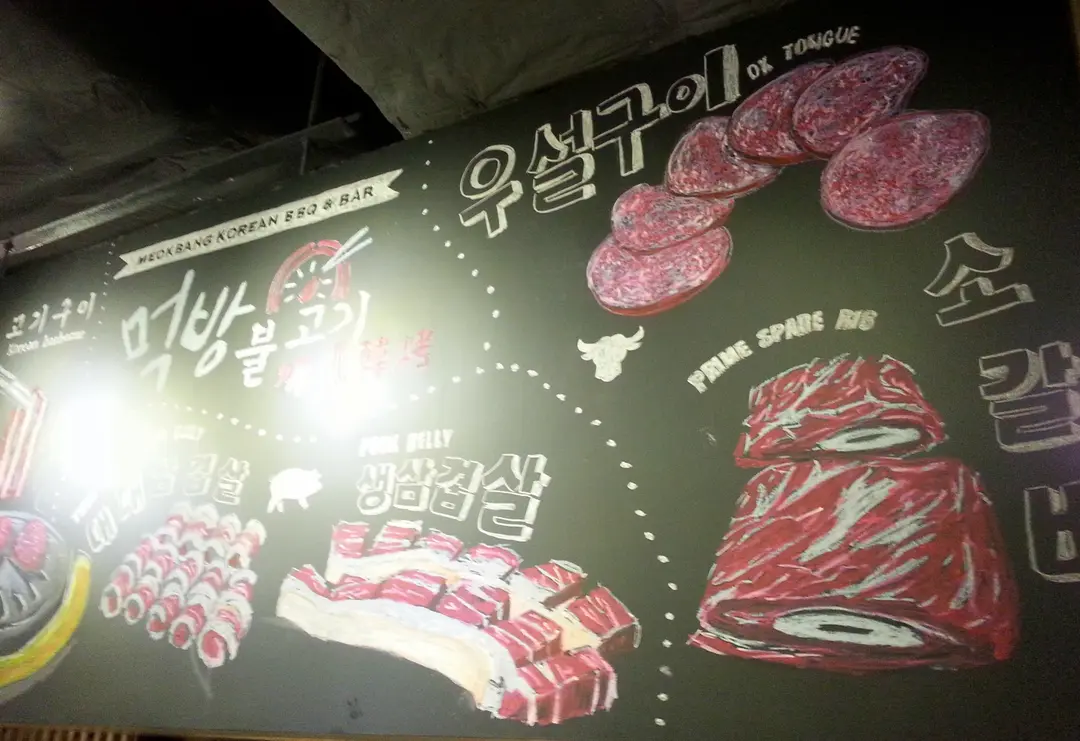 고기구이
Korean Barbecue
MEOKBANG KOREAN BBQ & BAR
먹방
불고기
烤
우설구이
OX TONGUE
PRIME SPARE RIB
소
갈
비
대패
삼겹살
PORK BELLY
생삼겹살